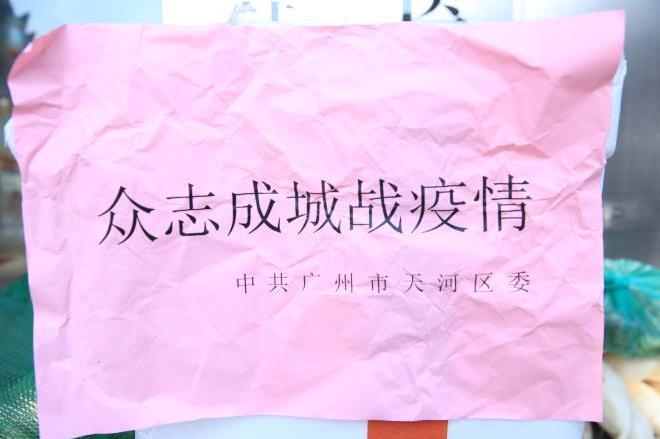 众志成城战疫情
中共广州市天河区委